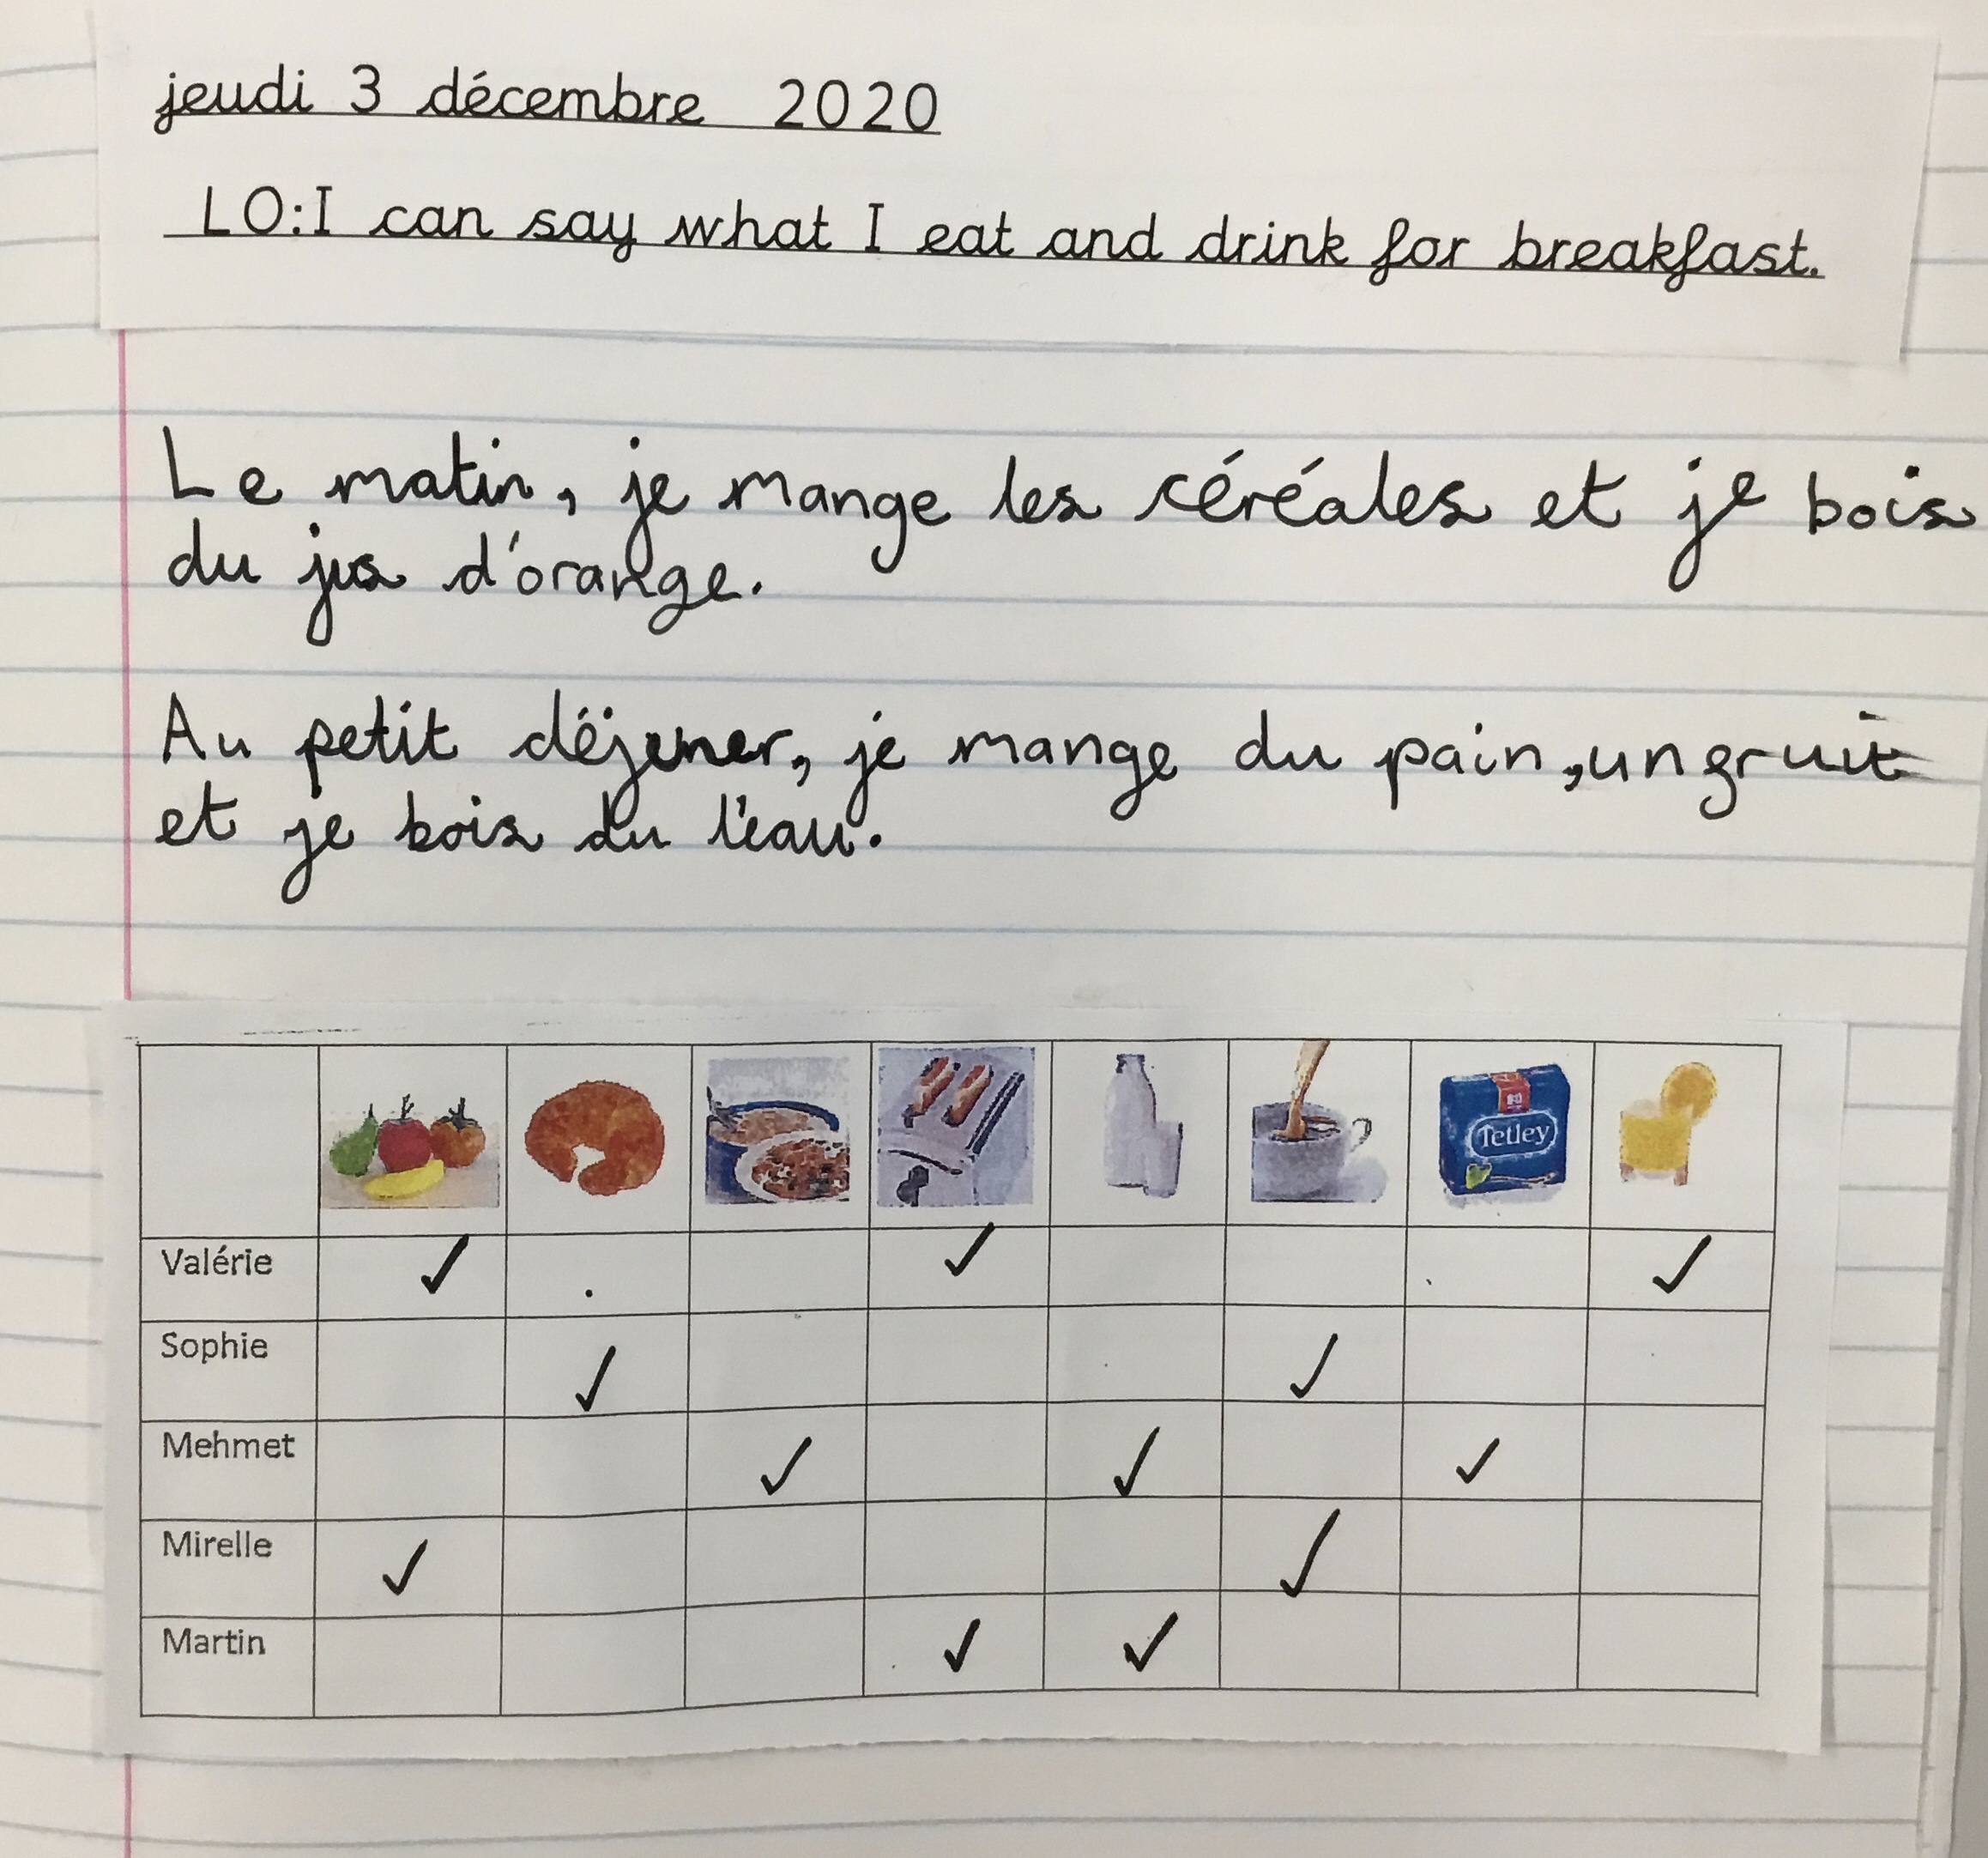 jeudi 3 décembre 2020
LO:I can say what I eat and drink for breakfast.
Le matin, je mange les céréales et je bois
du jus d'orange.
Au petit déjuner, je mange du pain, un gruit
et je bois du l'eau.
Tetley
Valérie
Sophie
Mehmet
Mirelle
Martin